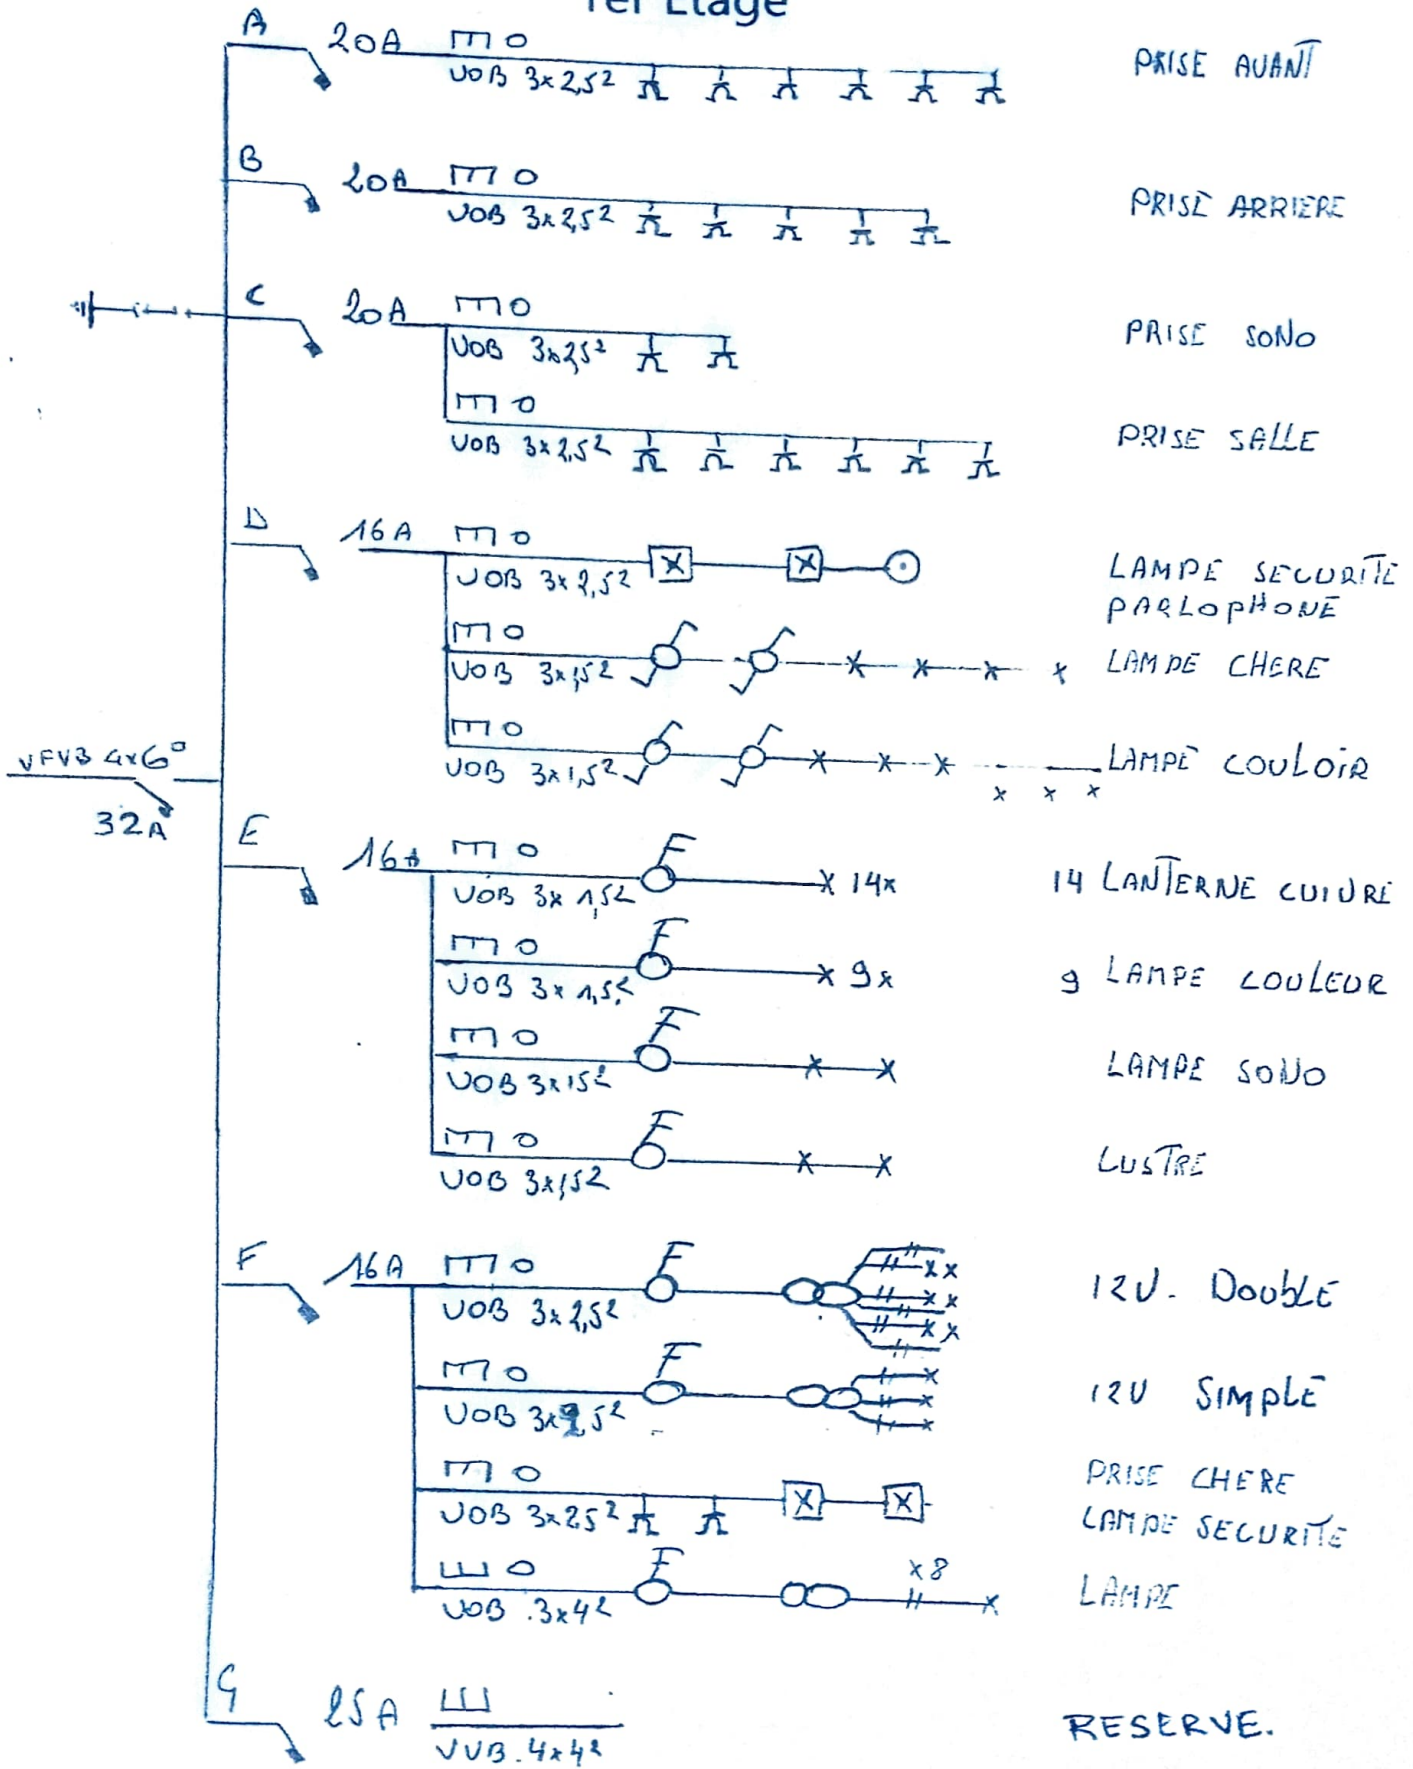 1er Etage
A 20A VOB 3x2,5² PRISE AVANT
B 20A VOB 3x2,5² PRISE ARRIERE
C 20A VOB 3x2,5² PRISE SONO
VOB 3x2,5² PRISE SALLE
D 16A VOB 3x2,5² LAMPE SECURITE
PARLOPHONE
VOB 3x1,5² LAMPE CHERE
VOB 3x1,5² LAMPE COULOIR
VFVB 4x6°
32A
E 16A VOB 3x1,5² 14x 14 LANTERNE CUIVRE
VOB 3x1,5² 9x 9 LAMPE COULEUR
VOB 3x15² LAMPE SONO
VOB 3x1,5² LUSTRE
F 16A VOB 3x2,5² 12V. DOUBLE
VOB 3x2,5² 12V SIMPLE
VOB 3x2,5² PRISE CHERE
LAMPE SECURITE
VOB .3x4² x8 LAMPE
G 25A VVB.4x4² RESERVE.